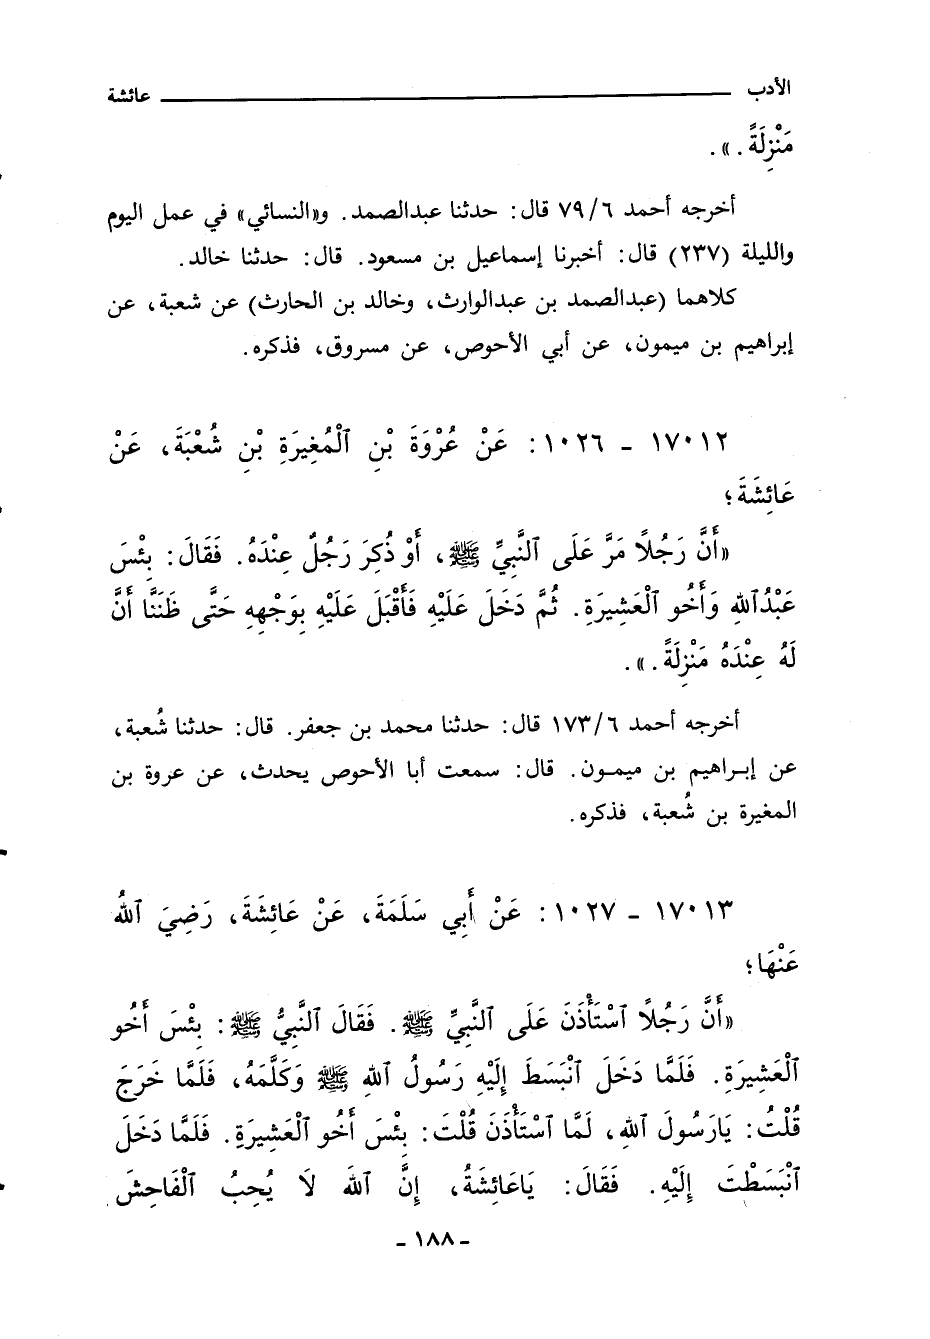 الأدب ــــــــ عائشة
مَنْزِلَةً . » .
أخرجه أحمد ٦/ ٧٩ قال : حدثنا عبدالصمد . و«النسائي» في عمل اليوم
والليلة (٢٣٧) قال : أخبرنا إسماعيل بن مسعود . قال : حدثنا خالد .
كلاهما (عبدالصمد بن عبدالوارث ، وخالد بن الحارث) عن شعبة ، عن
إبراهيم بن ميمون ، عن أبي الأحوص ، عن مسروق ، فذكره .
١٧٠١٢ - ١٠٢٦ : عَنْ عُرْوَةَ بْنِ ٱلْمُغِيرَةِ بْنِ شُعْبَةَ ، عَنْ
عَائِشَةَ ؛
«أَنَّ رَجُلًا مَرَّ عَلَى ٱلنَّبِيِّ ﷺ ، أَوْ ذُكِرَ رَجُلٌ عِنْدَهُ . فَقَالَ : بِئْسَ
عَبْدُاللهِ وَأَخُو ٱلْعَشِيرَةِ . ثُمَّ دَخَلَ عَلَيْهِ فَأَقْبَلَ عَلَيْهِ بِوَجْهِهِ حَتَّى ظَنَنَّا أَنَّ
لَهُ عِنْدَهُ مَنْزِلَةً . » .
أخرجه أحمد ٦/ ١٧٣ قال : حدثنا محمد بن جعفر . قال : حدثنا شُعبة ،
عن إبراهيم بن ميمون . قال : سمعت أبا الأحوص يحدث ، عن عروة بن
المغيرة بن شُعبة ، فذكره .
١٧٠١٣ - ١٠٢٧ : عَنْ أَبِي سَلَمَةَ ، عَنْ عَائِشَةَ ، رَضِيَ ٱللهُ
عَنْهَا ؛
«أَنَّ رَجُلًا ٱسْتَأْذَنَ عَلَى ٱلنَّبِيِّ ﷺ . فَقَالَ ٱلنَّبِيُّ ﷺ : بِئْسَ أَخُو
ٱلْعَشِيرَةِ . فَلَمَّا دَخَلَ ٱنْبَسَطَ إِلَيْهِ رَسُولُ ٱللهِ ﷺ وَكَلَّمَهُ ، فَلَمَّا خَرَجَ
قُلْتُ : يَارَسُولَ ٱللهِ ، لَمَّا ٱسْتَأْذَنَ قُلْتَ : بِئْسَ أَخُو ٱلْعَشِيرَةِ . فَلَمَّا دَخَلَ
ٱنْبَسَطْتَ إِلَيْهِ . فَقَالَ : يَاعَائِشَةُ ، إِنَّ ٱللهَ لَا يُحِبُّ ٱلْفَاحِشَ
- ١٨٨ -